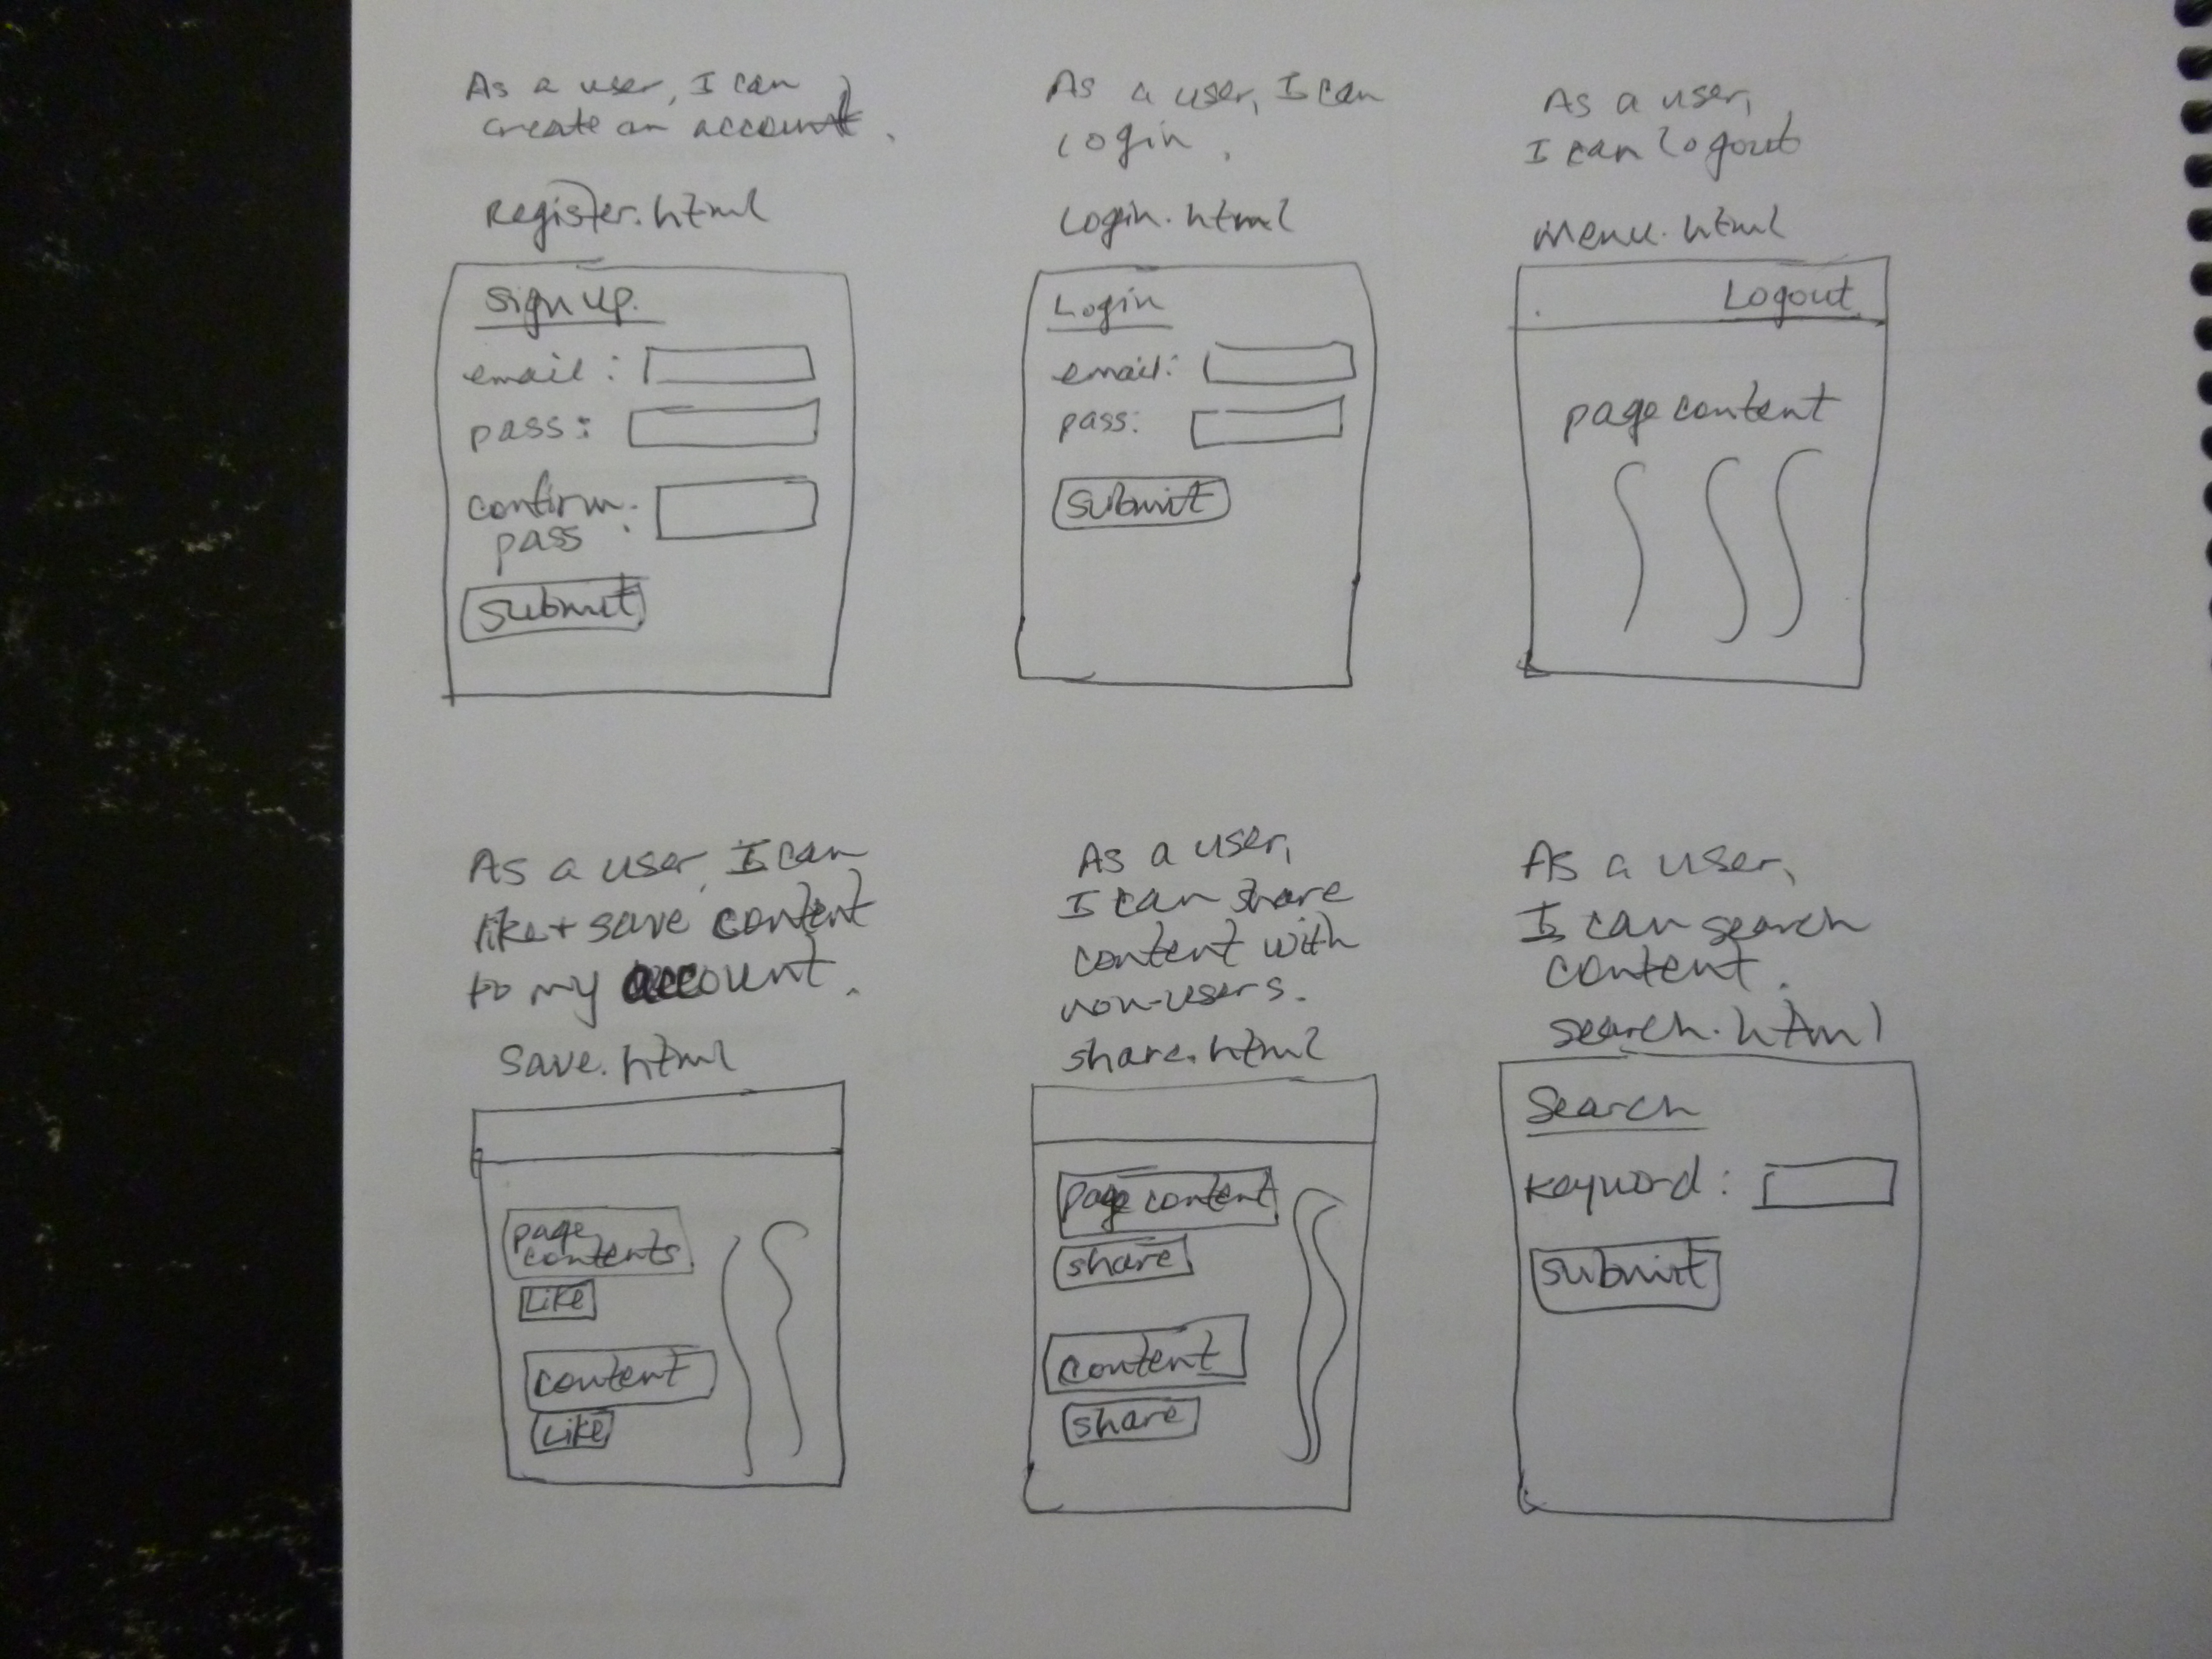 As a user, I can
create an account.
Register.html
Sign up.
email:
pass:
confirm:
pass
submit
As a user, I can
login.
Login.html
Login
email:
pass:
submit
As a user,
I can logout
Menu.html
Logout
page content
As a user, I can
like + save content
to my account.
Save.html
page
contents
Like
content
Like
As a user,
I can share
content with
non-users.
share.html
page content
share
content
share
As a user,
I can search
content.
search.html
Search
Keyword:
submit